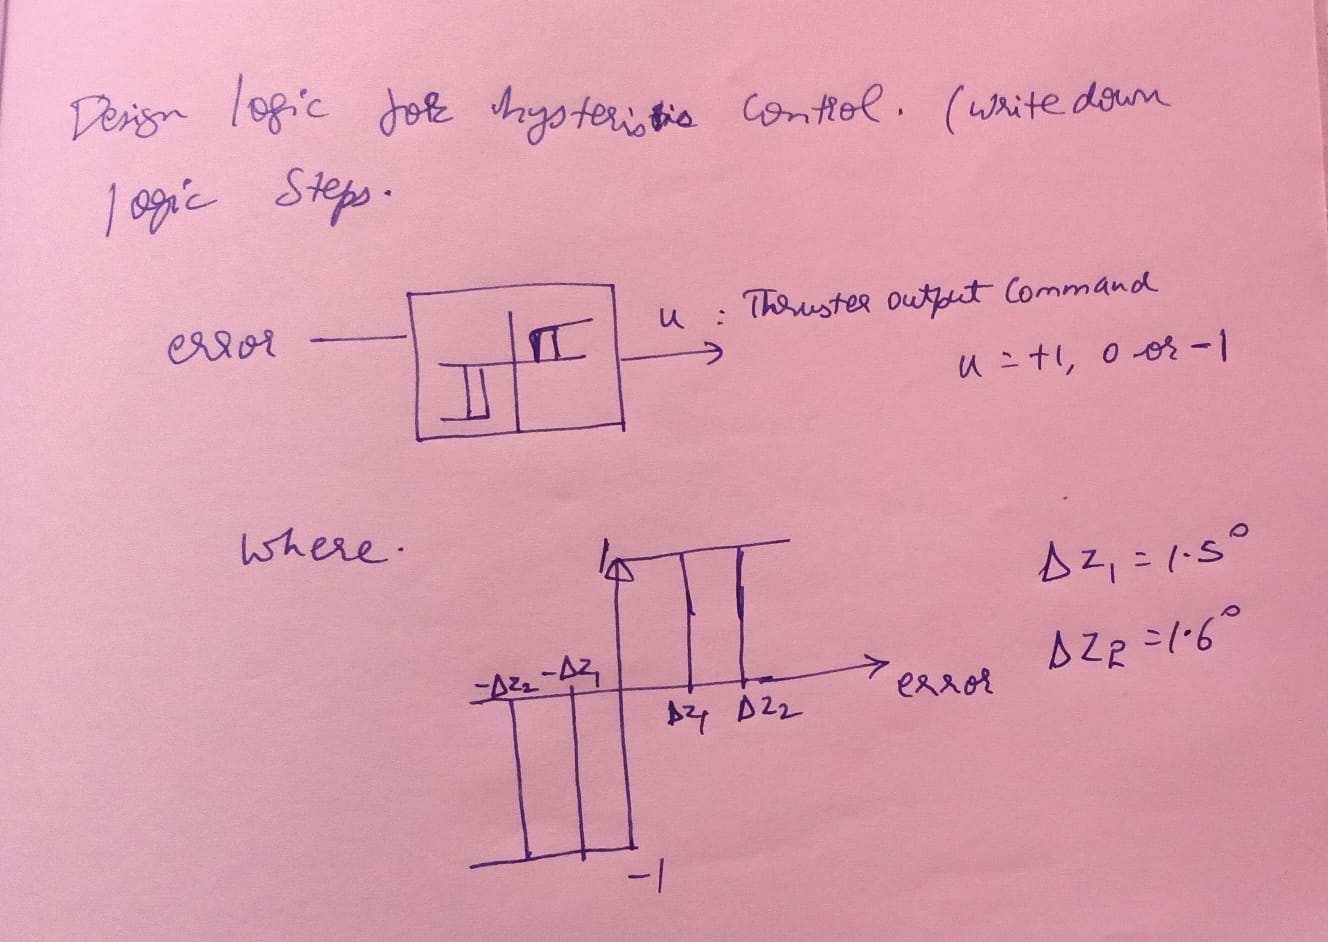 Design logic for hysteristic control. (write down
logic steps.
error
u : Thruster output Command
u = +1, 0 or -1
where.
1
ΔZ₁ = 1.5°
ΔZ₂ = 1.6°
-ΔZ₂ -ΔZ₁
error
ΔZ₁ ΔZ₂
-1